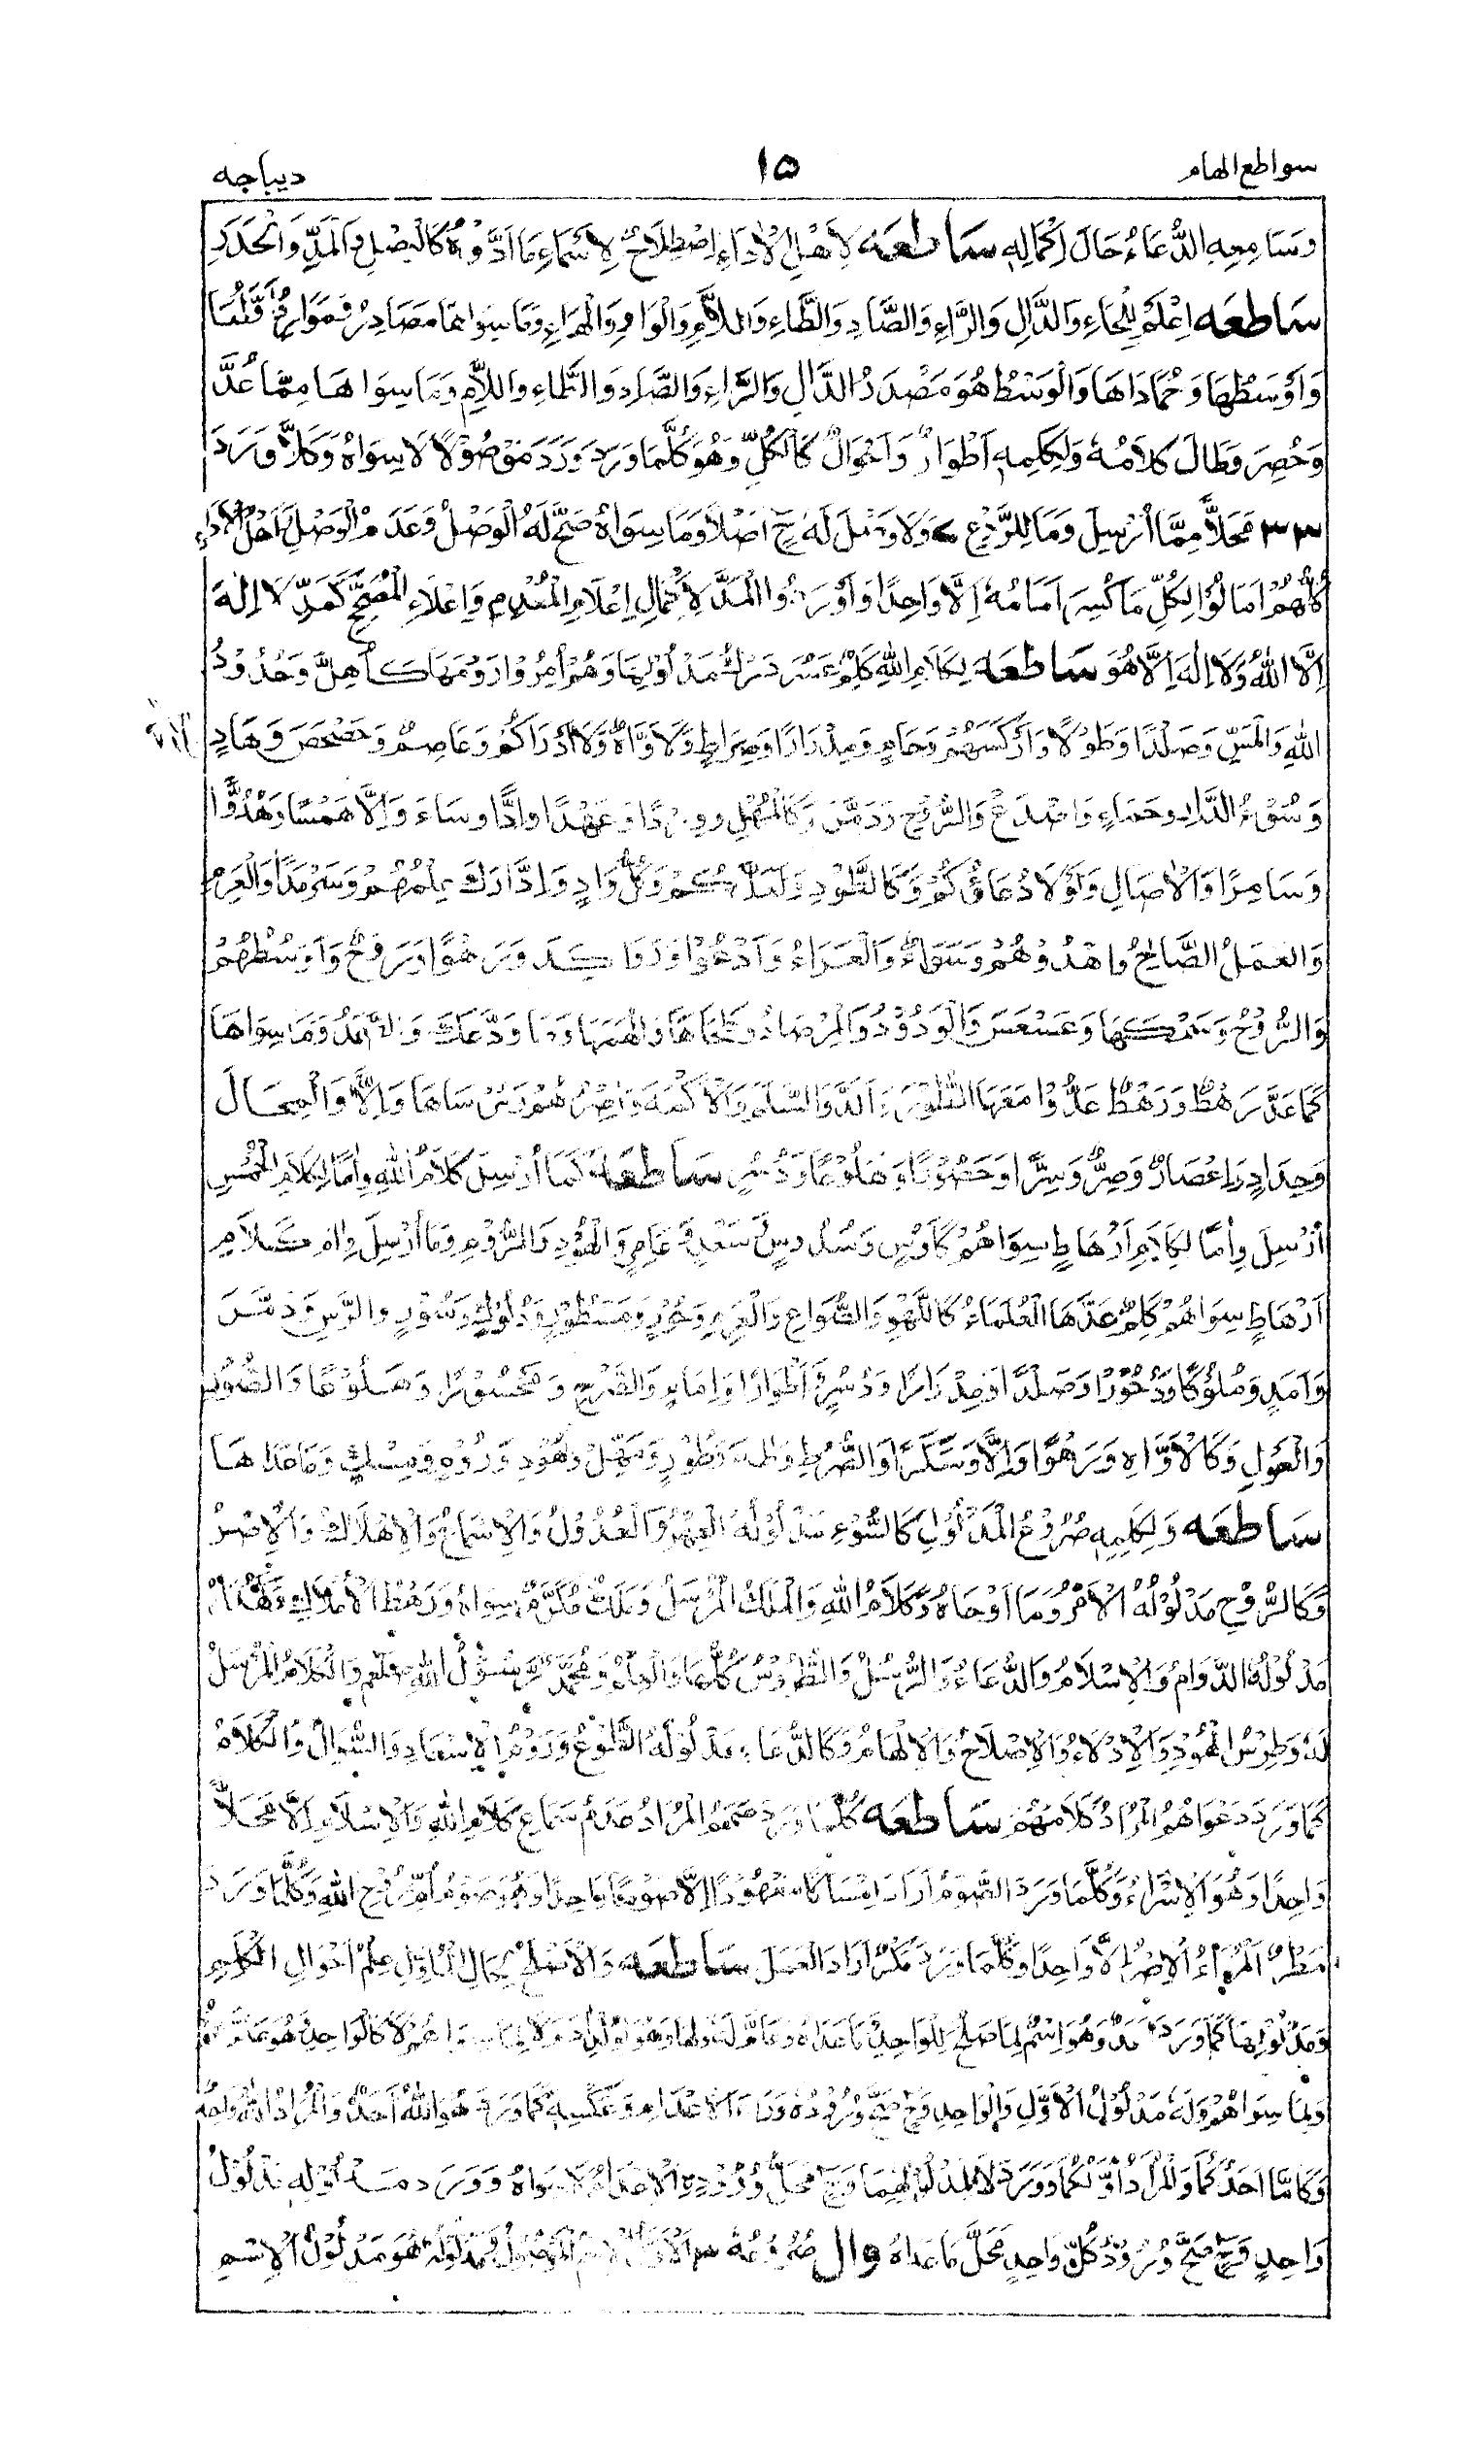 سواطع الهام
١٥
ديباجه
وَسَامِعِهِ الدُّعَاءُ حَالَ اِكْمَالِهِ ساطعه لِاَهْلِ الْاَدَاءِ اِصْطِلَاحٌ لِاَسْمَاءِ مَا اَدَّوْهُ كَالْوَصْلِ وَالْمَدِّ وَالْحَدَرِ
ساطعه اِعْلَمْ لِلْحَاءِ وَالدَّالِ وَالرَّاءِ وَالصَّادِ وَالطَّاءِ وَاللَّامِ وَالْوَاوِ وَالْهَاءِ وَمَا سِوَاهَا مَصَادِرُ وَمَوَارِدُ اَوَّلُهَا
وَاَوْسَطُهَا وَحُمَادَاهَا وَالْوَسَطُ هُوَ مَصْدَرُ الدَّالِ وَالرَّاءِ وَالصَّادِ وَالطَّاءِ وَاللَّامِ وَمَا سِوَاهَا مِمَّا عُدَّ
وَحُصِرَ وَطَالَ كَلَامُهُ وَلِكَلِمِهِ اَطْوَارٌ وَاَحْوَالٌ كَالْكُلِّ وَهُوَ كُلَّمَا وَرَدَ وَرَدَ مَوْصُوْلًا لَا سِوَاهُ وَكَلَّا وَرَدَ
٣٣ مَحَلًّا مِمَّا اُرْسِلَ وَمَا لِلرَّدْعِ وَلَا وَصْلَ لَهُ ح اَصْلًا وَمَا سِوَاهُ صَحَّ لَهُ الْوَصْلُ وَعَدَمُ الْوَصْلِ اَهْلُ الْاَدَاءِ
كُلُّهُمْ اَمَالُوْا لِكُلِّ مَا كُسِرَ اَمَامُهُ اِلَّا وَاحِدًا وَاَوْرَدُوا الْمَدَّ لِاِكْمَالِ اِعْلَامِ الْمُعْدِمِ وَاِعْلَاءِ الْمُصَحِّحِ كَمَدِّ لَا اِلٰهَ
اِلَّا اللهُ وَلَا اِلٰهَ اِلَّا هُوَ ساطعه لِكَلَامِ اللهِ كَلِمٌ عَسُرَ دَرْكُ مَدْلُوْلِهَا وَهُمْ اُمِرُوْا رَوْمَهَا كَاُهِلَّ وَحُدُوْدُ
اللهِ وَالْمَسِّ وَصَلْدًا وَطَوْلًا وَاَرْكَسَهُمْ وَحَامٍ وَمِدْرَارًا وَصِرَاطٍ وَلَاَوَّاهٌ وَلَا اَدْرَاكُمْ وَعَاصِمٌ وَحَصْحَصَ وَهَادٍ
وَسُوْءُ الدَّارِ وَحَمَاءٍ وَاصْدَعْ وَالرُّوْحِ وَدَمَّرَ وَكَالْمُهْلِ وَعَهْدًا وَاِدًّا وَسَاءَ وَاِلَّا هَمْسًا وَهُدُوْا
وَسَامِرًا وَالْاٰصَالِ وَلَوْلَا دُعَاؤُكُمْ وَكَالطَّوْدِ وَكُلِّ وَادٍ وَادَّارَكَ عِلْمُهُمْ وَسَرْمَدًا وَالْعَرِمِ
وَالْعَمَلُ الصَّالِحُ وَاهْدُوْهُمْ وَسَوَاءٌ وَالْعَرَاءُ وَادْعُوْا وَرَهْوًا وَرَوْحٌ وَاَوْسَطُهُمْ
وَالرُّوْحُ وَسَمْكَهَا وَعَسْعَسَ وَالْوَدُوْدُ وَالْمِرْصَادُ وَطَحَاهَا وَاَلْهَمَهَا وَمَا وَدَّعَكَ وَمَا سِوَاهَا
كَمَا عَدَّ رَهْطٌ وَرَهْطٌ عَدُّوْا مَعَهَا الطُّوْرَ وَاَلَدُّ وَالسَّلَمَ وَالْاَكْمَهَ وَاِصْرَهُمْ وَمُرْسَاهَا وَاِلًّا وَالْمِحَالَ
وَحِدَادٍ وَاِعْصَارٌ وَصِرٌّ وَسِرًّا وَحَصُوْرًا وَهَلُوْعًا وَدُسُرٍ ساطعه كَمَا اُرْسِلَ كَلَامُ اللهِ وِاٰمًا لِكَلَامِ الْحُمْسِ
اُرْسِلَ وِاٰمًا لِكَلَامِ اَرْهَاطٍ سِوَاهُمْ كَاَوْسٍ وَسُدُوسٍ سَعْدِ وَعَامِرٍ وَالْهُوْدِ وَالرُّوْمِ وَمَا اُرْسِلَ وِاٰمَ كَلَامِ
اَرْهَاطٍ سِوَاهُمْ كَلِمٌ عَدَّهَا الْعُلَمَاءُ كَاللَّهْوِ وَالصُّوَاعِ وَالْعَرِمِ وَحُوْرٍ وَمَسْطُوْرٍ وَدُلُوْكٍ وَسُوْرٍ وَالرَّسِّ وَدَمَّرَ
وَاَمَدٍ وَمُلُوْكًا وَدُحُوْرًا وَصَلْدًا وَمِدْرَارًا وَدُسُرٍ وَاَطْوَارًا وَاِمَامٍ وَالصَّرْحَ وَمَحْسُوْرًا وَهَلُوْعًا وَالصُّوْرِ
وَالْعَوْلِ وَكَالْاَوَّاهِ وَرَهْوًا وَاِلَّا وَسَكَرًا وَالصِّرَاطِ وَطٰهٰ وَطُوْرٍ وَمُهْلٍ وَهُوْدٍ وَرُوْمٍ وَمِسْكٍ وَمَا عَدَاهَا
ساطعه وَلِكَلِمِهِ صُرُوْعُ الْمَدْلُوْلِ كَالسُّوْءِ مَدْلُوْلُهُ الْعِهْرُ وَالْعُدُوْلُ وَالْاِسْمَاعُ وَالْاِهْلَاكُ وَالْاِصْرُ
وَكَالرُّوْحِ مَدْلُوْلُهُ الْاَمْرُ وَمَا اَوْحَاهُ وَكَلَامُ اللهِ وَالْمَلَكُ الْمُرْسَلُ وَمَلَكٌ مُكَرَّمٌ سِوَاهُ وَرَهْطُ الْاَمْلَاكِ
مَدْلُوْلُهُ الدَّوَامُ وَالْاِسْلَامُ وَالدُّعَاءُ وَالرُّسُلُ وَالطُّرُوْسُ كُلُّهَا وَالْعِلْمُ وَمُحَمَّدٌ رَسُوْلُ اللهِ صلعم وَالْكَلَامُ الْمُرْسَلُ
لَهُ وَطِرْسُ الْهُوْدِ وَالْاِدْلَاءُ وَالْاِصْلَاحُ وَالْاِلْهَامُ وَكَالدُّعَاءِ مَدْلُوْلُهُ الطَّوْعُ وَرَوْمُ الْاِسْعَادِ وَالسُّؤَالُ وَالْكَلَامُ
كَمَا وَرَدَ دَعْوَاهُمُ الْمُرَادُ كَلَامُهُمْ ساطعه كُلَّمَا وَرَدَ صَمَمٌ الْمُرَادُ عَدَمُ سَمَاعِ كَلَامِ اللهِ وَالْاِسْلَامِ اِلَّا مَحَلًّا
وَاحِدًا وَهُوَ الْاِسْرَاءُ وَكُلَّمَا وَرَدَ الصَّوْمُ اَرَادَ اِمْسَاكًا مَعْهُوْدًا اِلَّا صَوْمًا وَاحِدًا وَهُوَ صَوْمُ اُمِّ رُوْحِ اللهِ وَكُلَّمَا وَرَدَ
مَطَرٌ الْمُرَادُ الْاِصْرُ اِلَّا وَاحِدًا وَكُلَّمَا وَرَدَ مَكْرٌ اَرَادَ الْعَمَلَ ساطعه وَالْاَصْلَحُ لِحَالِ الْمُأَوِّلِ عِلْمُ اَحْوَالِ الْكَلِمِ
وَمَدْلُوْلِهَا كَمَا وَرَدَ اَحَدٌ وَهُوَ اِسْمٌ لِمَا صَلُحَ لِلْوَاحِدِ وَمَا عَدَاهُ
وَلِمَا سِوَاهُمْ وَلَهُ مَدْلُوْلُ الْاَوَّلِ وَالْوَاحِدِ وَح صَحَّ وُرُوْدُهُ وَرَاءَ الْاِعْدَامِ وَعَكْسِهِ كَمَا وَرَدَ هُوَ اللهُ اَحَدٌ وَالْمُرَادُ اللهُ وَاحِدٌ
وَكَاَمَّا اَحَدُكُمَا وَالْمُرَادُ اَوَّلُكُمَا وَوَرَدَ لَا لِمَدْلُوْلِهِمَا وَح مَحَلُّ وُرُوْدِهِ الْاِعْدَامُ لَا سِوَاهُ وَوَرَدَ مَدْلُوْلِهِ مَدْلُوْلُ
وَاحِدٍ وَح صَحَّ وُرُوْدُ كُلِّ وَاحِدٍ مَحَلَّ مَا عَدَاهُ وال صُرُوْعُهُ ٣ الْاَوَّلُ الْاِسْمُ الْمَوْصُوْلُ وَمَدْلُوْلُهُ هُوَ مَدْلُوْلُ الْاِسْمِ